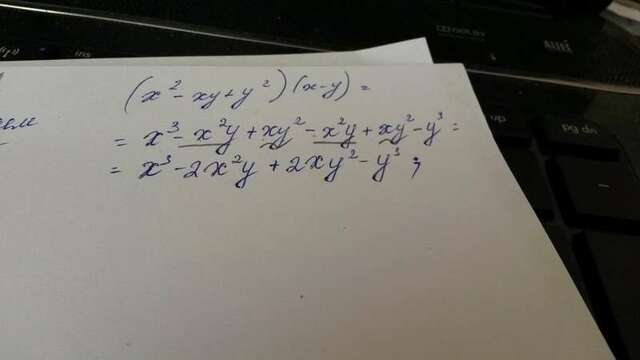 (x² - xy + y²)(x-y) =
= x³ - x²y + xy² - x²y + xy² - y³ =
= x³ - 2x²y + 2xy² - y³ ;
DOLBY
pg up